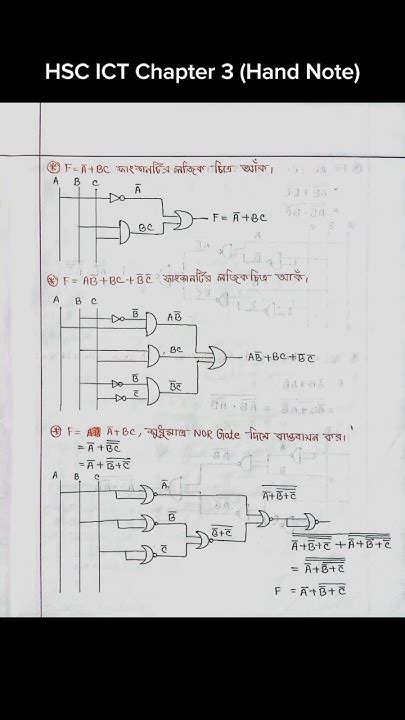 HSC ICT Chapter 3 (Hand Note)
F = A̅ + BC ফাংশনটির লজিক চিত্র আঁক।
A B C
A̅
BC
F = A̅ + BC
F = AB̅ + BC + B̅ C̅ ফাংশনটির লজিক চিত্র আঁক।
A B C
B̅
AB̅
BC
AB̅ + BC + B̅ C̅
B̅
C̅
B̅C̅
F = A̅ + BC, শুধুমাত্র NOR Gate দিয়ে বাস্তবায়ন কর।
= A̅ + B̿C̿
= A̅ + \overline{B̅ + C̅}
A B C
A̅
\overline{A̅ + \overline{B̅ + C̅}}
B̅
\overline{B̅ + C̅}
C̅
= \overline{\overline{A̅ + \overline{B̅ + C̅}}}
F = A̅ + \overline{B̅ + C̅}